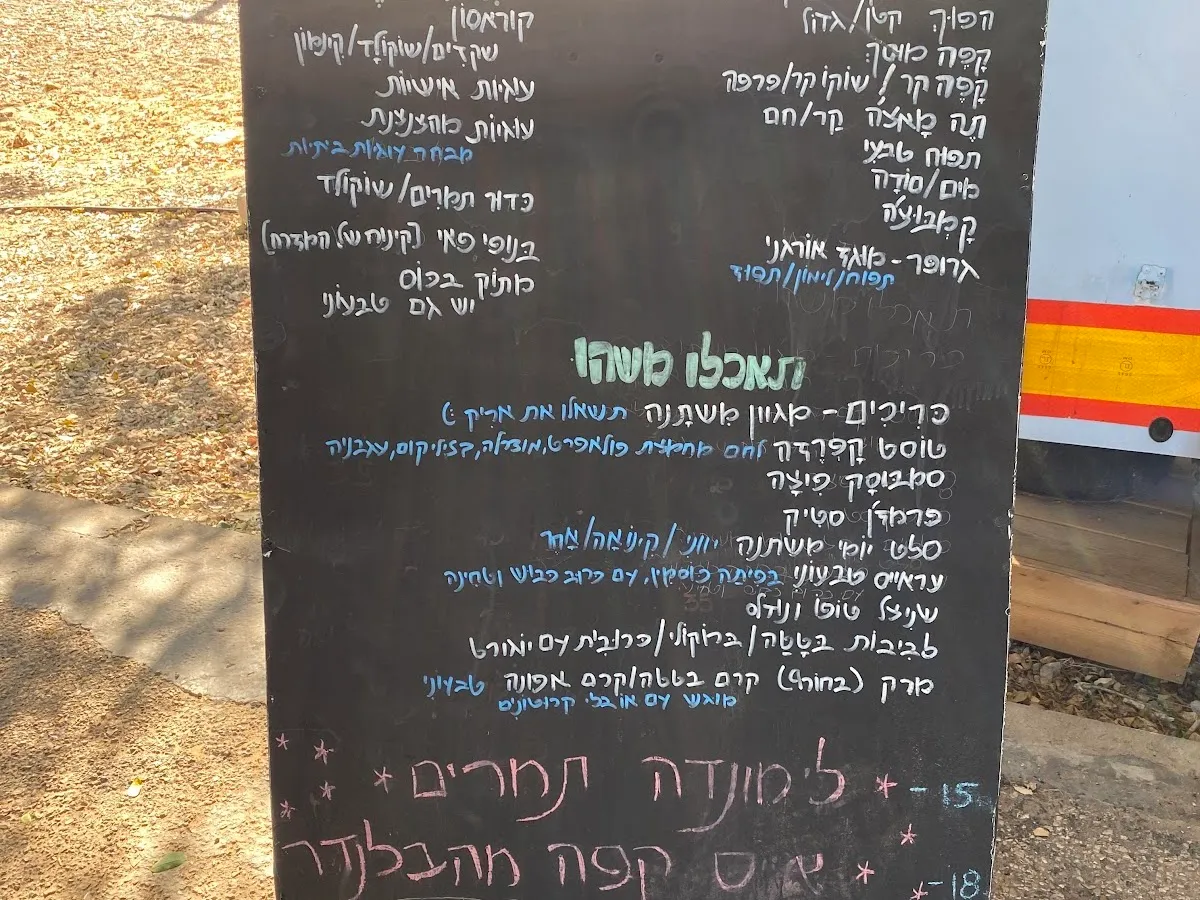 הפוך קטן/גדול
קָפֶה מוּסְךְ
קָפֶה קר/שוֹקוֹ קר/פרפה
תֶה מָאצָ'ה קַר/חם
תפוח טבעי
מים/סוֹדָה
קָמְבּוּצָ'ה
גרופר - מוּגז אוֹרגני
תפוח/לימון/תפוז
קוראסוֹן
שקדים/שוֹקוֹלָד/קִינמוֹן
עוגיוֹת אישיוֹת
עוגיוֹת מהצנצנת
מבחר עוגיות ביתיות
כדור תמרים/שוֹקוֹלד
בנופי פאי (קינוח של המזרח)
מתוֹק בכוֹס
יש גם טבעוֹני
תאכלו משהו
כריכים - מגוון משתנה תשאלו את אריק :)
טוֹסט קָפְרֶזֶה לחם מחמצת פולאפרט, מוצרלה, בזיליקום, עגבניה
סמבּוּסָק פִּיצָה
פרמז'ן סטיק
סלט יוֹמִי משתנה יווני/קִינוֹאָה/אַחֵר
עראייס טבעוֹני בּפיתה כוסמין, עם כרוב כביש וטחינה
שניצל טוֹפוּ ונוּדלס
לביבוֹת בּטָטָה/ברוֹקוֹלי/כרוּבית עם יוֹגורט
מרק (בחורף) קרם בטטה/קרם אפונה טבעוני
מוגש עם או בלי קרוטונים
* לימונדה תמרים * - 15
* אייס קפה מהבלנדר * - 18